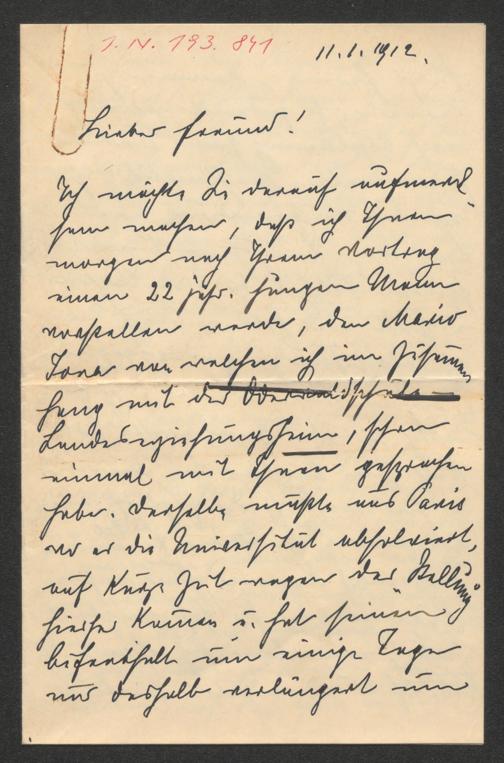 I. N. 193.841
11.1.1912.
Lieber Freund!
Ich möchte Sie darauf aufmerk-
sam machen, daß ich Ihnen
morgen nach Ihrem Vortrag
einen 22 jähr. jungen Mann
vorstellen werde, den Mario
von welchen ich im Zusammen
hang mit der Odenwaldschule
Landeserziehungsheim, schon
einmal mit Ihnen gesprochen
habe. Derselbe mußte aus Paris
wo er die Universität absolviert,
auf kurze Zeit wegen der Stellung
hierher kommen u. hat seinen
um einige Tage
nur deshalb verlängert um